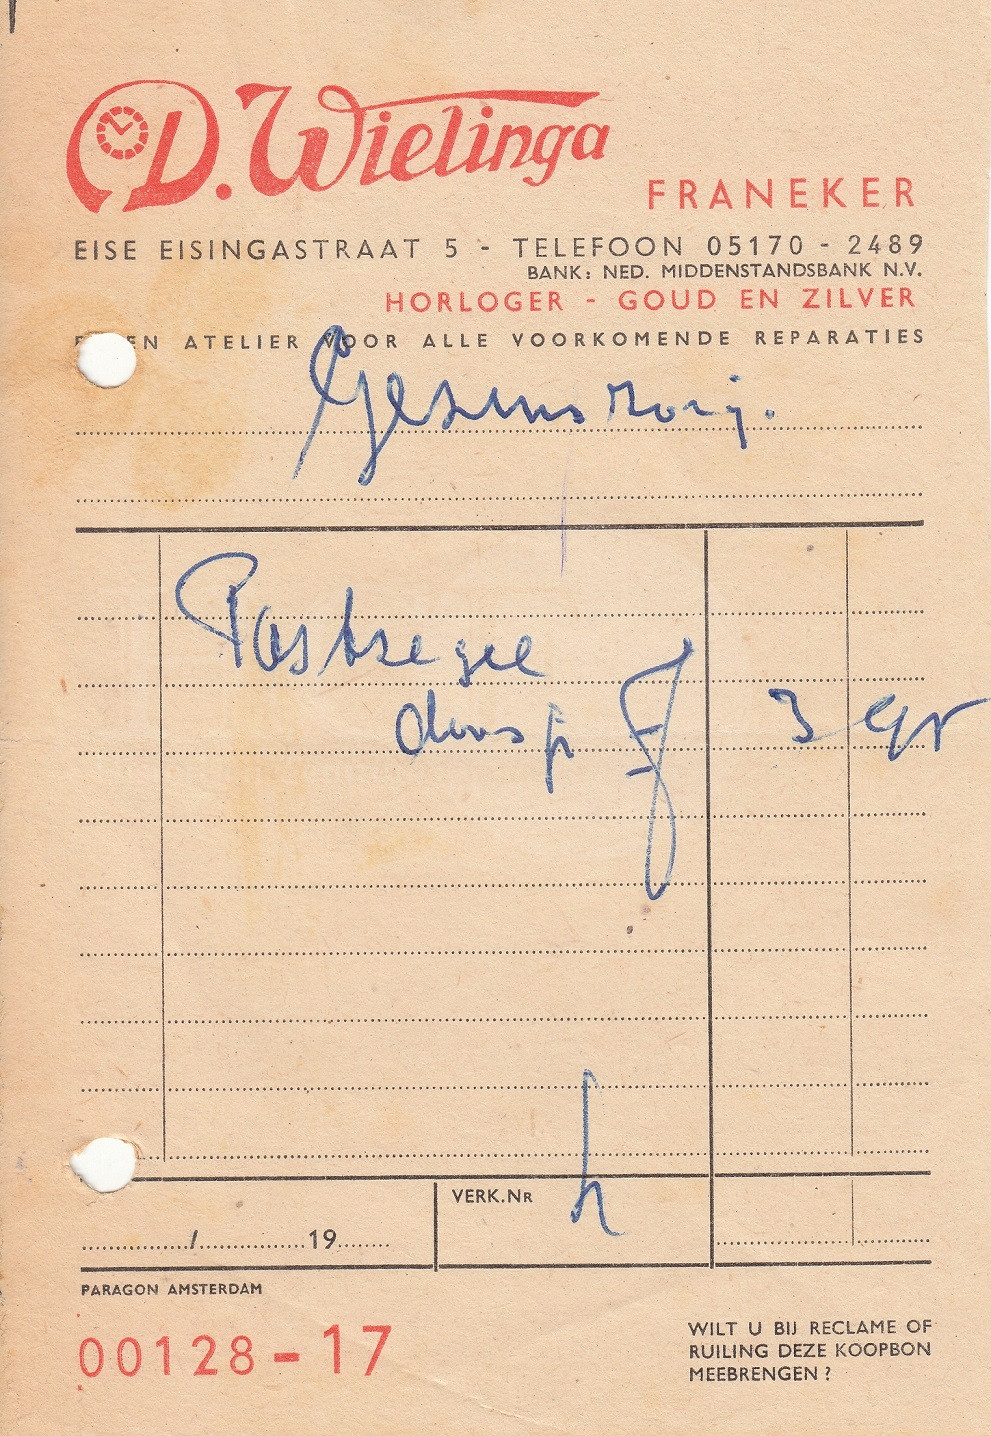 D. Wielinga
FRANEKER
EISE EISINGASTRAAT 5 - TELEFOON 05170 - 2489
BANK: NED. MIDDENSTANDSBANK N.V.
HORLOGER - GOUD EN ZILVER
EN ATELIER VOOR ALLE VOORKOMENDE REPARATIES
Postzegel
doosje 3
VERK.NR
/ 19
PARAGON AMSTERDAM
00128-17
WILT U BIJ RECLAME OF
RUILING DEZE KOOPBON
MEEBRENGEN?